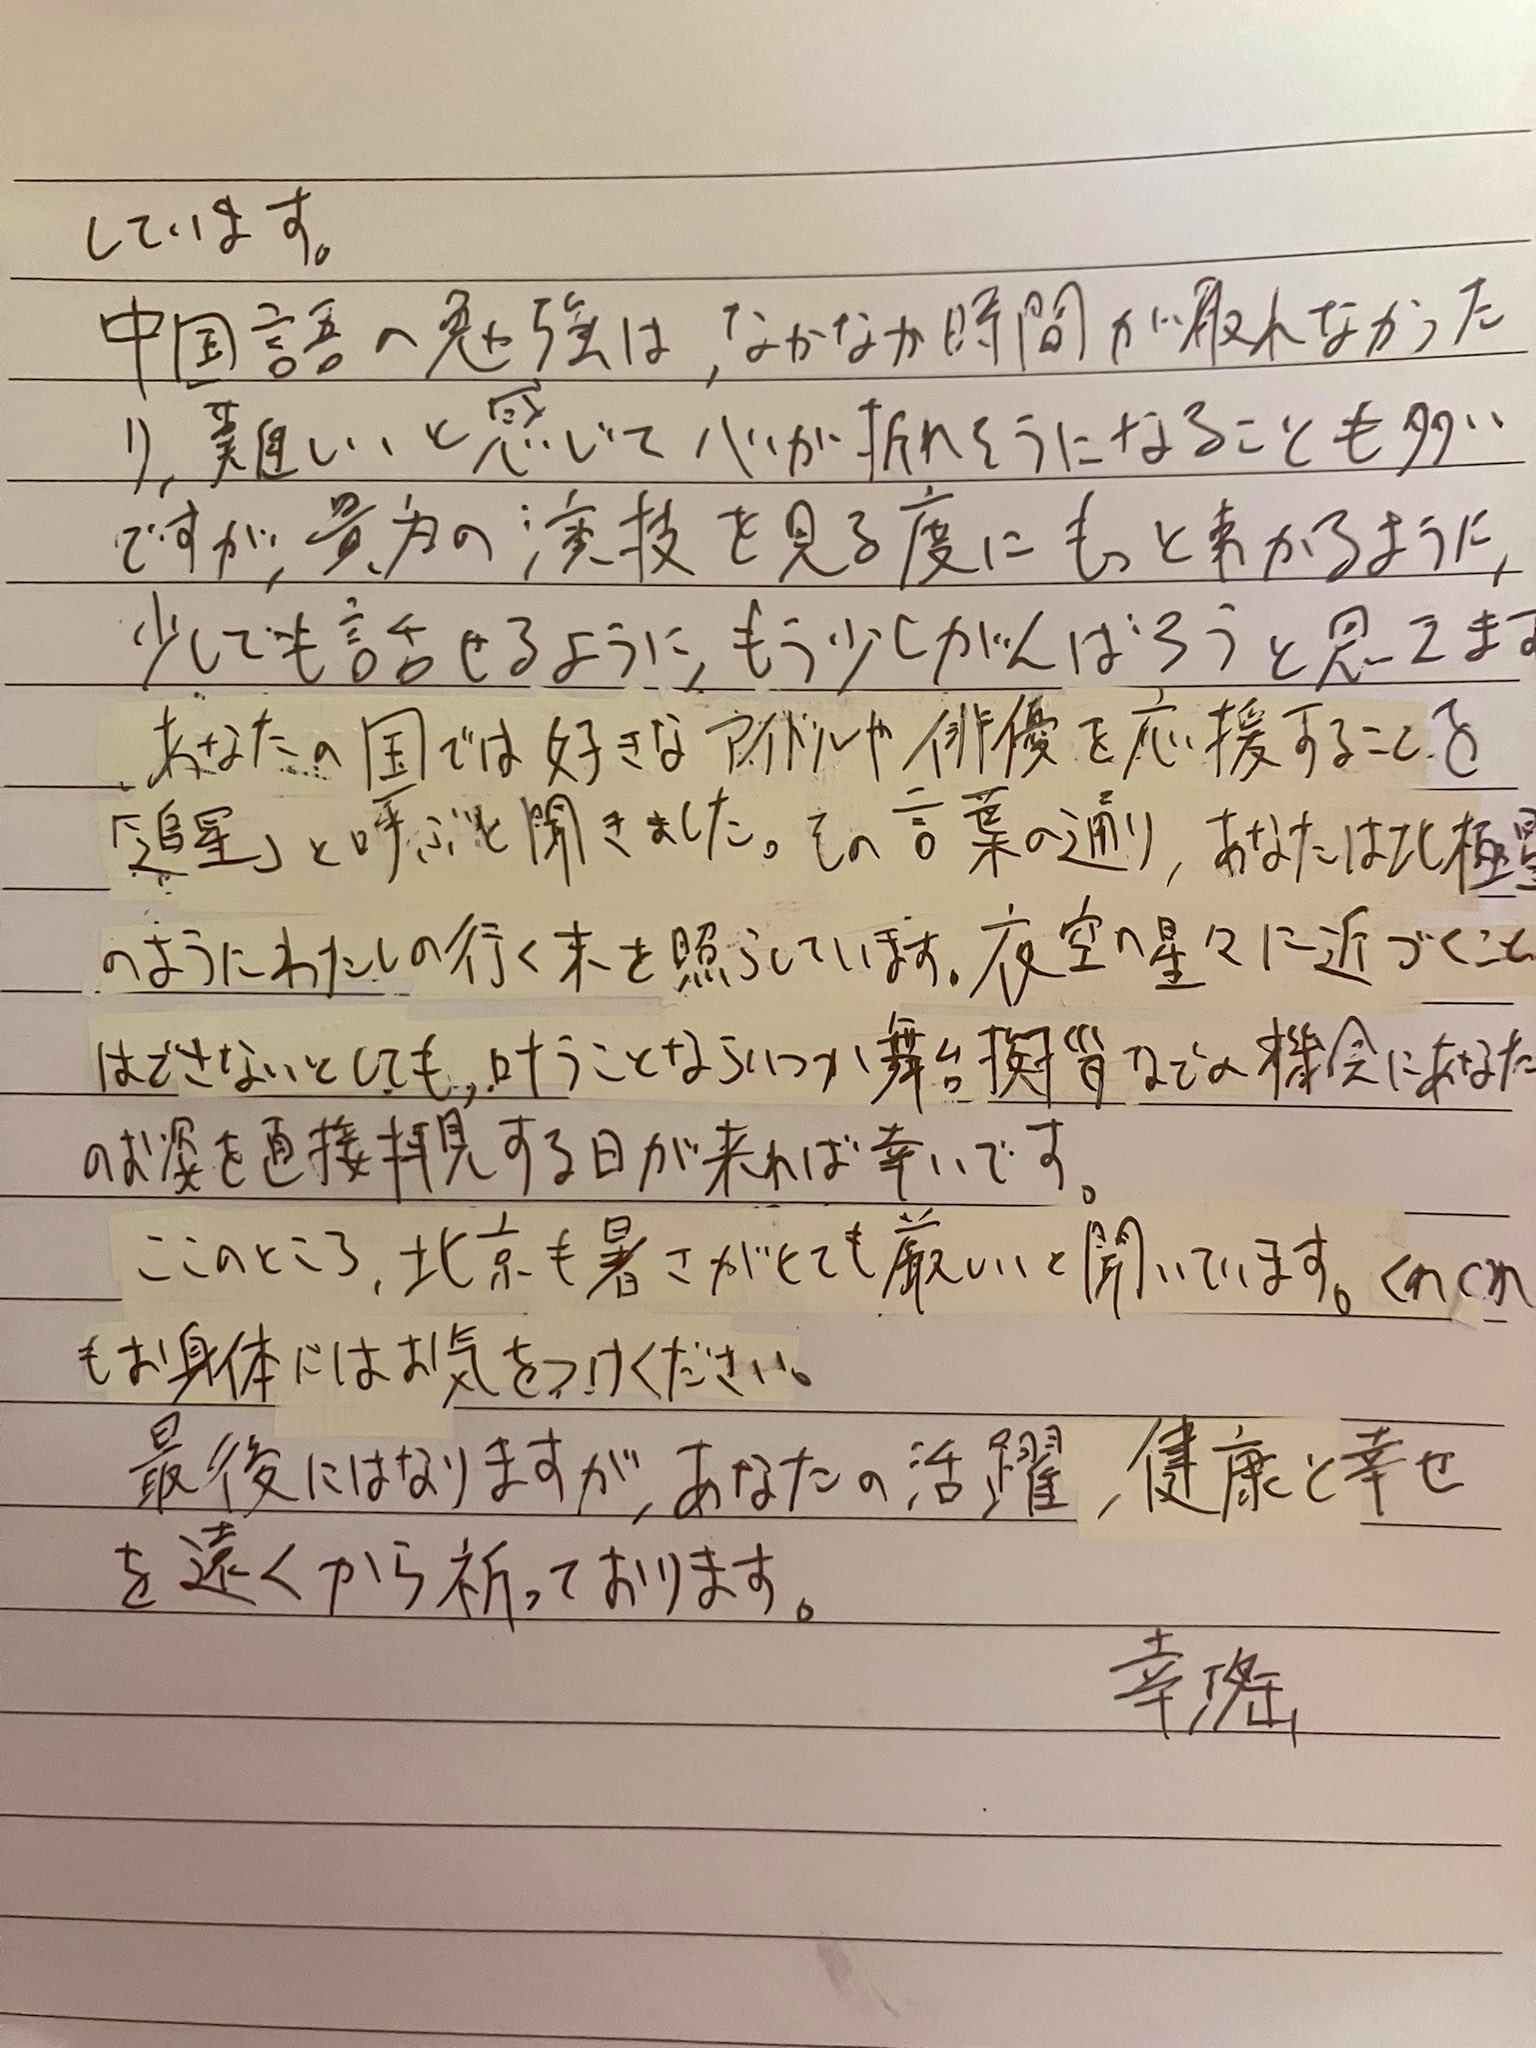 しています。
中国語の勉強は,なかなか時間が取れなかった
り,難しいと感じて心が折れそうになることも多い
ですが,貴方の演技を見る度にもっとわかるように,
少しでも話せるように,もう少しがんばろうと思えます
あなたの国では好きなアイドルや俳優を応援することを
「追星」と呼ぶと聞きました。その言葉の通り,あなたは北極星
のようにわたしの行く末を照らしています。夜空の星々に近づくこと
はできないとしても,叶うことならいつか舞台挨拶などの機会にあなた
のお姿を直接拝見する日が来れば幸いです。
ここのところ,北京も暑さがとても厳しいと聞いています。くれぐれ
もお身体にはお気をつけください。
最後にはなりますが,あなたの活躍,健康と幸せ
を遠くから祈っております。
幸